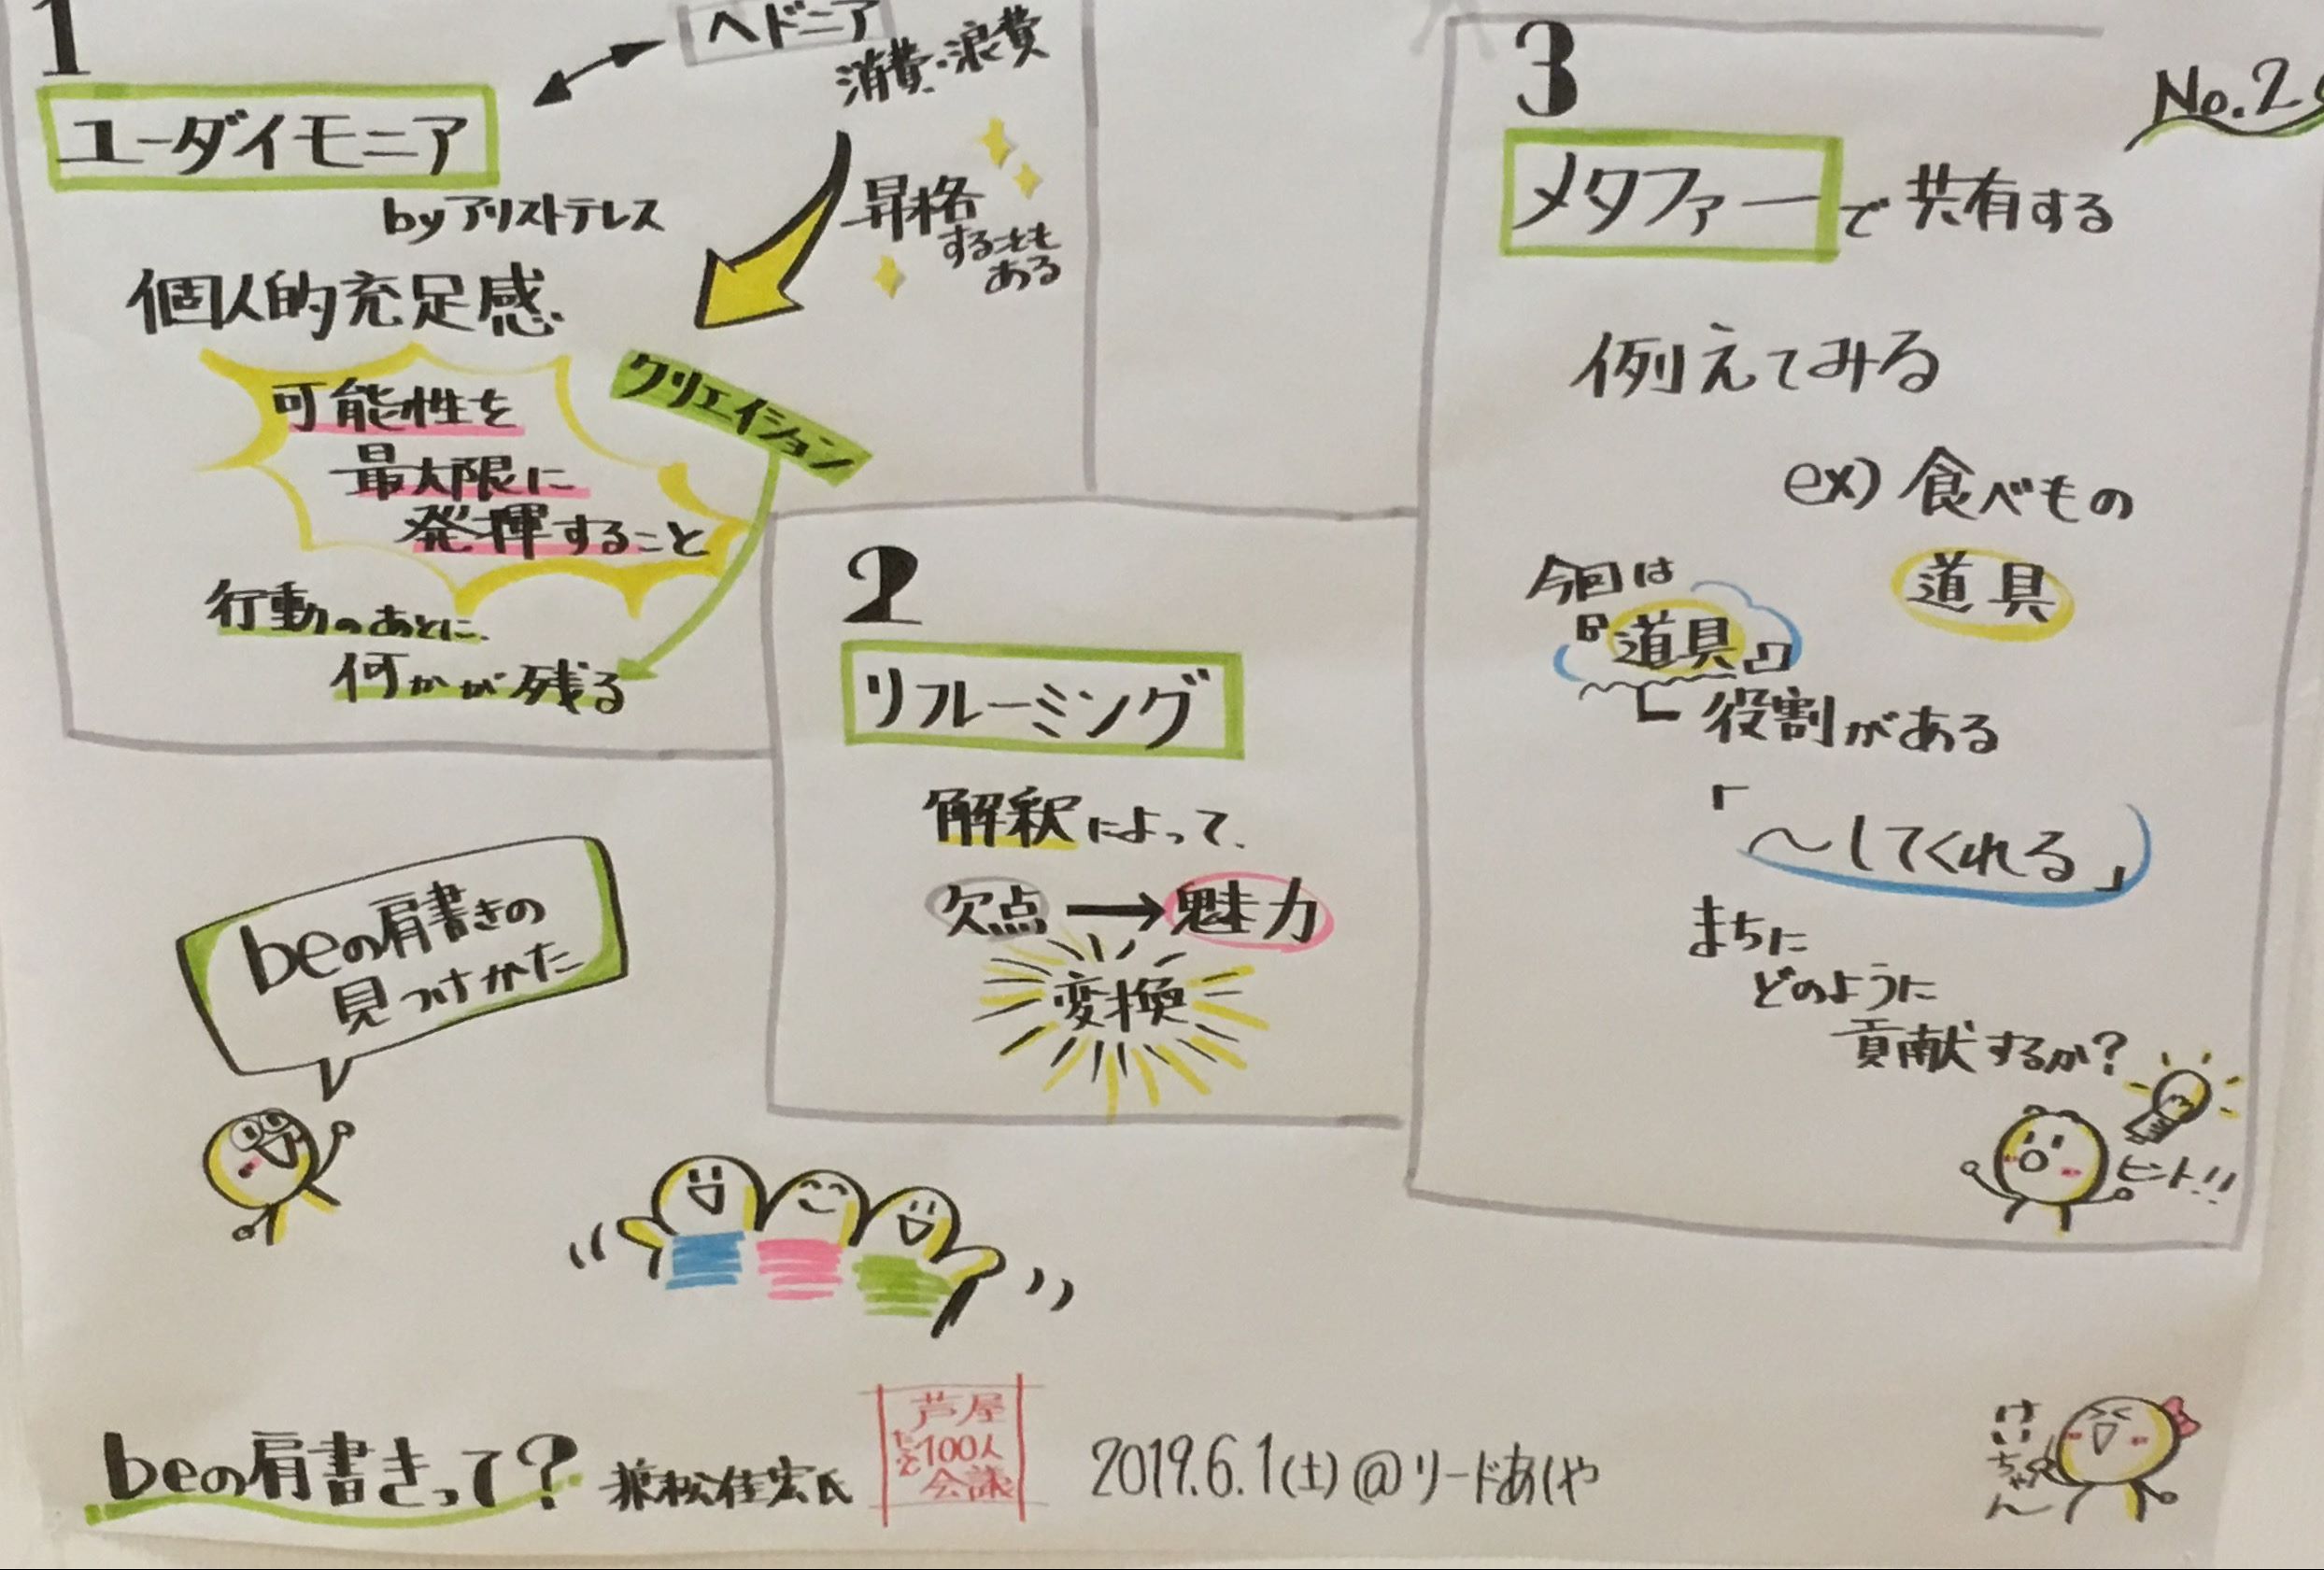 1
ユーダイモニア
by アリストテレス
ヘドニア
消費・浪費
昇格
することも
ある
個人的充足感
可能性を
最大限に
発揮すること
クリエイション
行動のあとに、
何かが残る
2
リフレーミング
解釈によって、
欠点→魅力
変換
No.2
3
メタファーで共有する
例えてみる
ex) 食べもの
道具
今回は
『道具』
役割がある
「〜してくれる」
まちに
どのように
貢献するか?
ヒント!!
beの肩書きの
見つけかた
beの肩書きって? 兼松佳宏氏
芦屋
100人
会議
2019.6.1(土)@リードあしや
けいちゃん